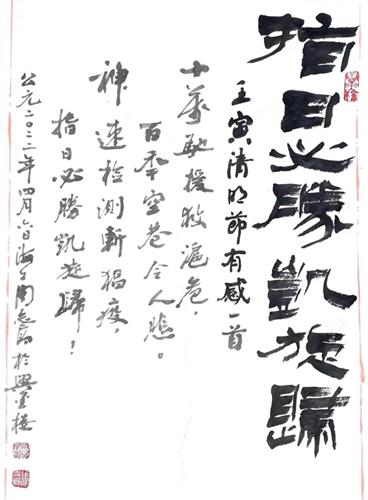 指日必勝凱旋歸
壬寅清明節有感一首
十萬馳援救滬危，
百季空巷令人悲。
神速检測斬猖疫，
指日必勝凱旋歸！
公元二〇二二年四月
於興星楼